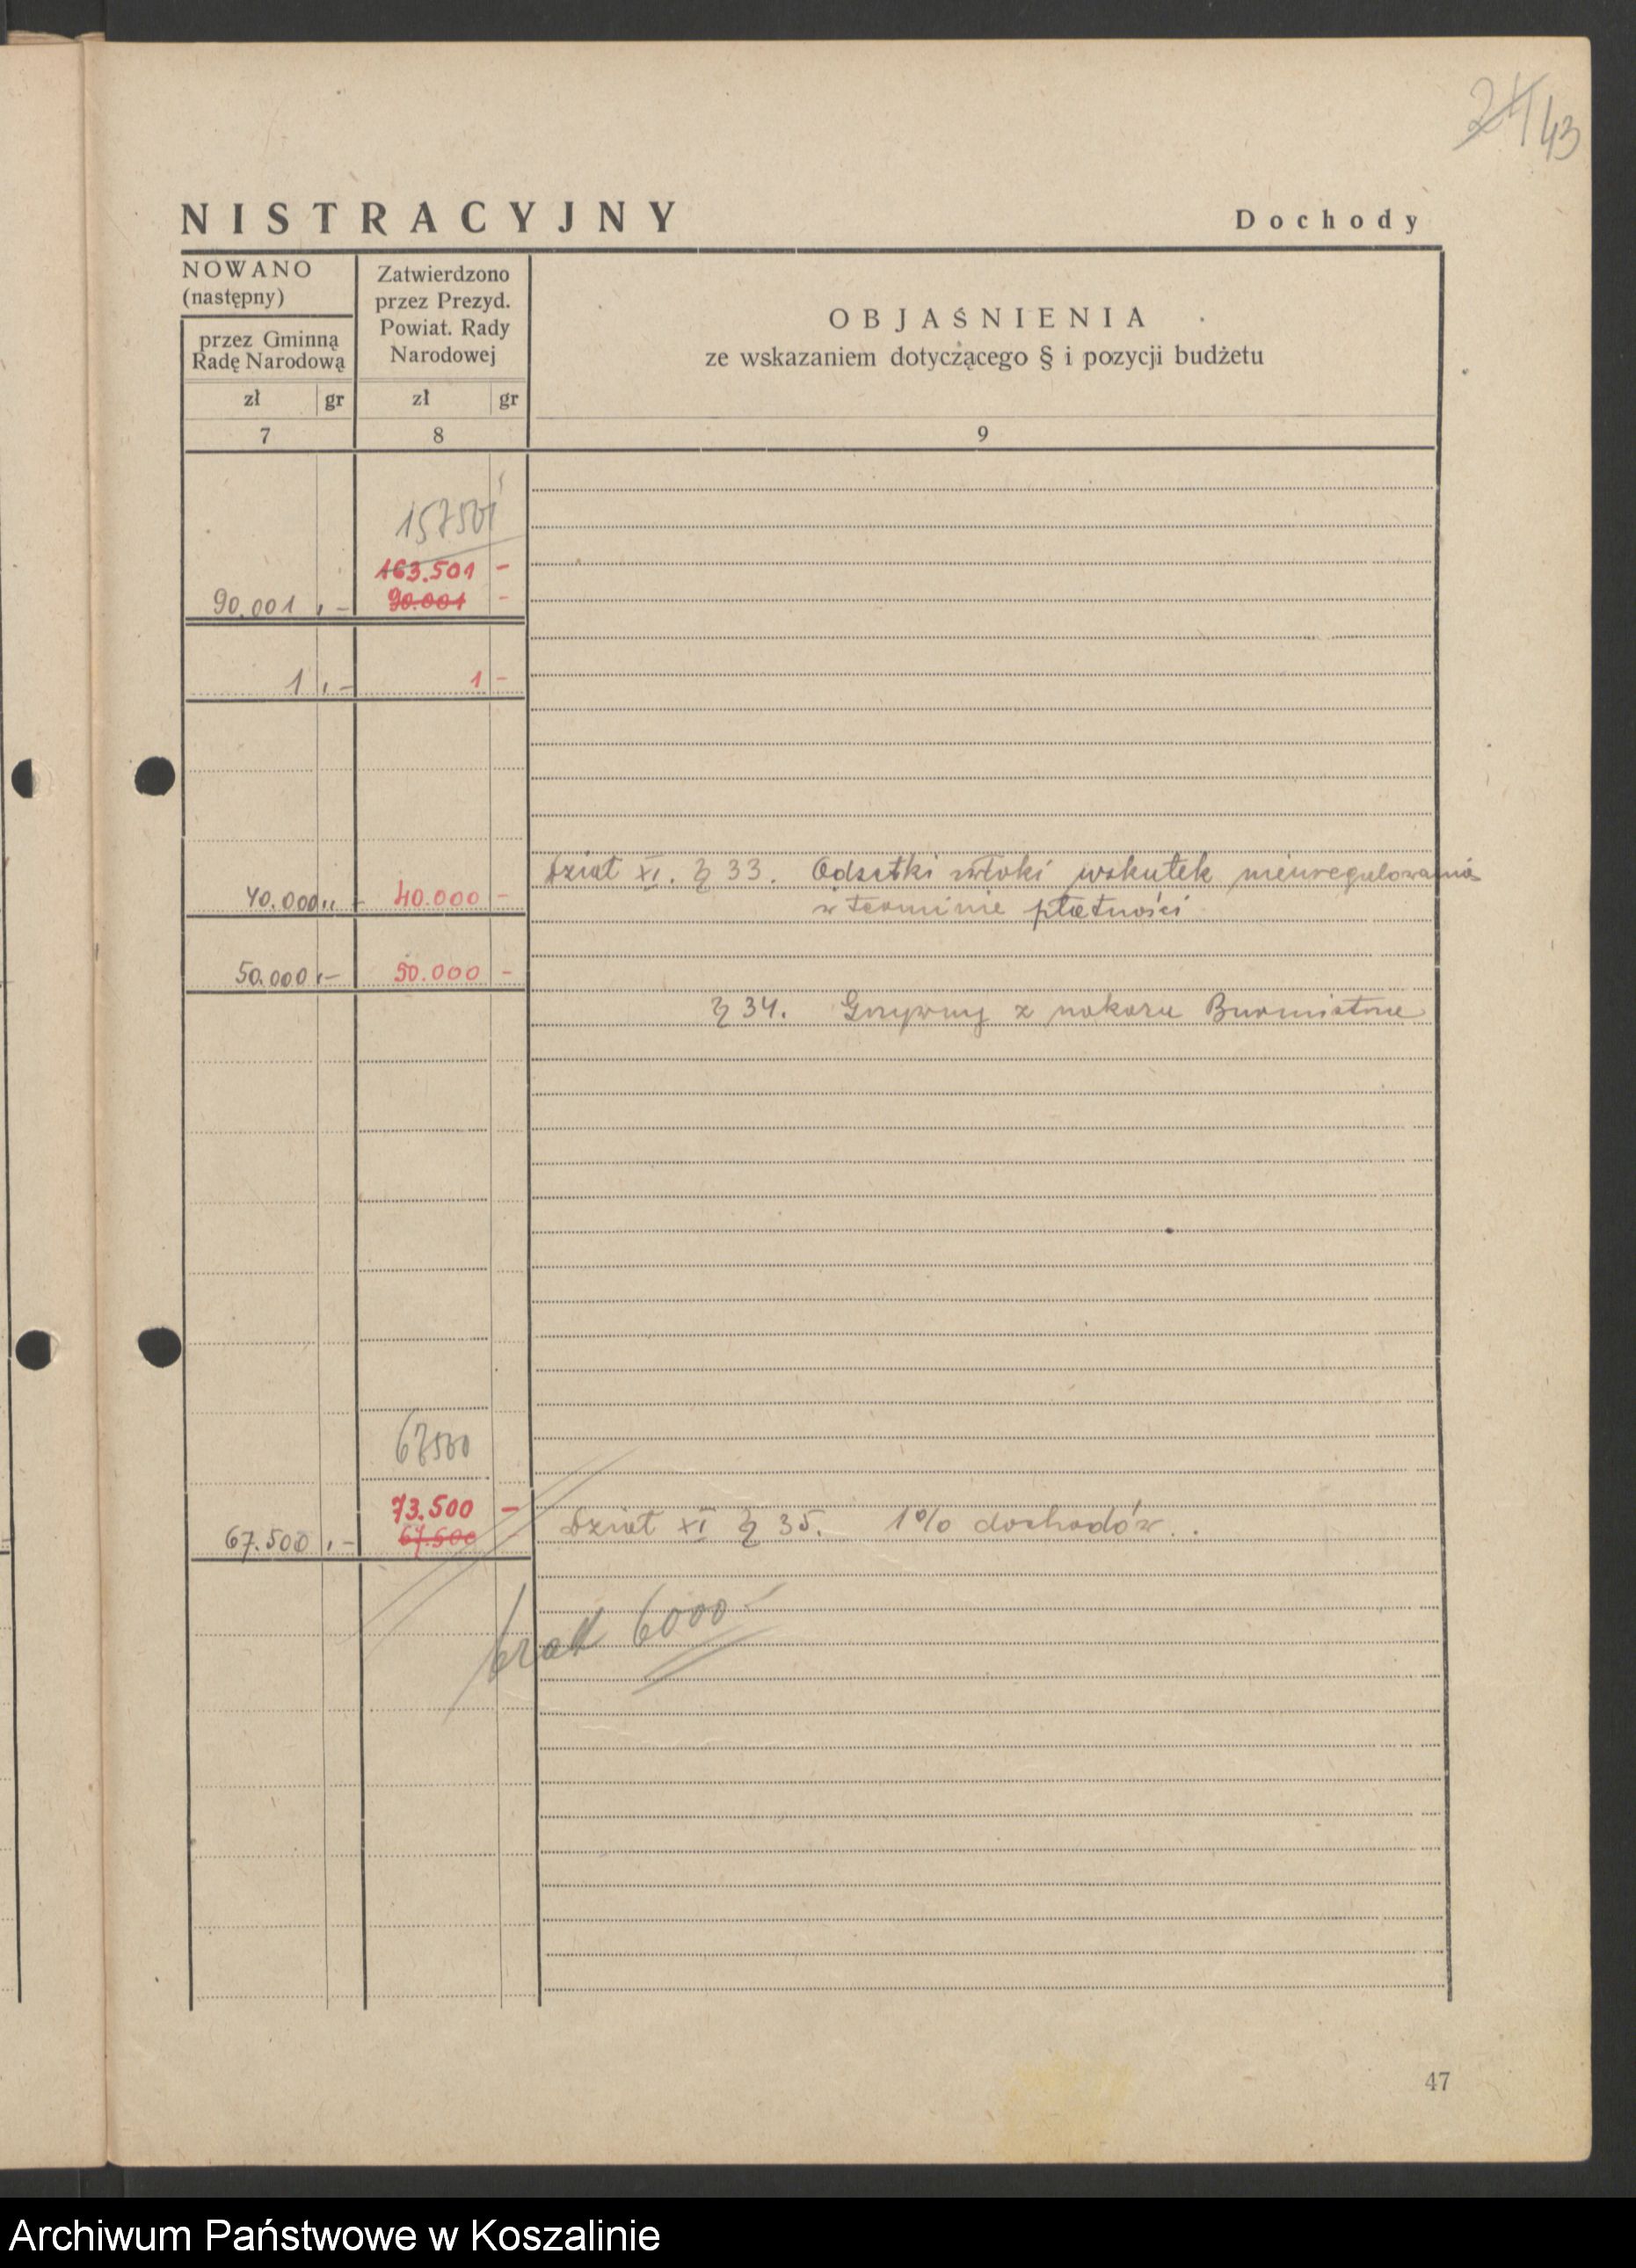 43
NISTRACYJNY Dochody
NOWANO
(następny)
przez Gminną
Radę Narodową
Zatwierdzono
przez Prezyd.
Powiat. Rady
Narodowej
OBJAŚNIENIA
ze wskazaniem dotyczącego § i pozycji budżetu
zł gr zł gr
7 8 9
157501
163.501 -
90.001,- 90.001 -
1,- 1 -
Dział XI. § 33. Odsetki zwłoki wskutek nieuregulowania
40.000,- 40.000 -
w terminie płatności
50.000,- 50.000 -
§ 34. Grzywny z nakazu Burmistrza
67500
73.500 -
67.500,- 67.500
Dział XI § 35. 1% dochodów.
brak 6000
47
Archiwum Państwowe w Koszalinie